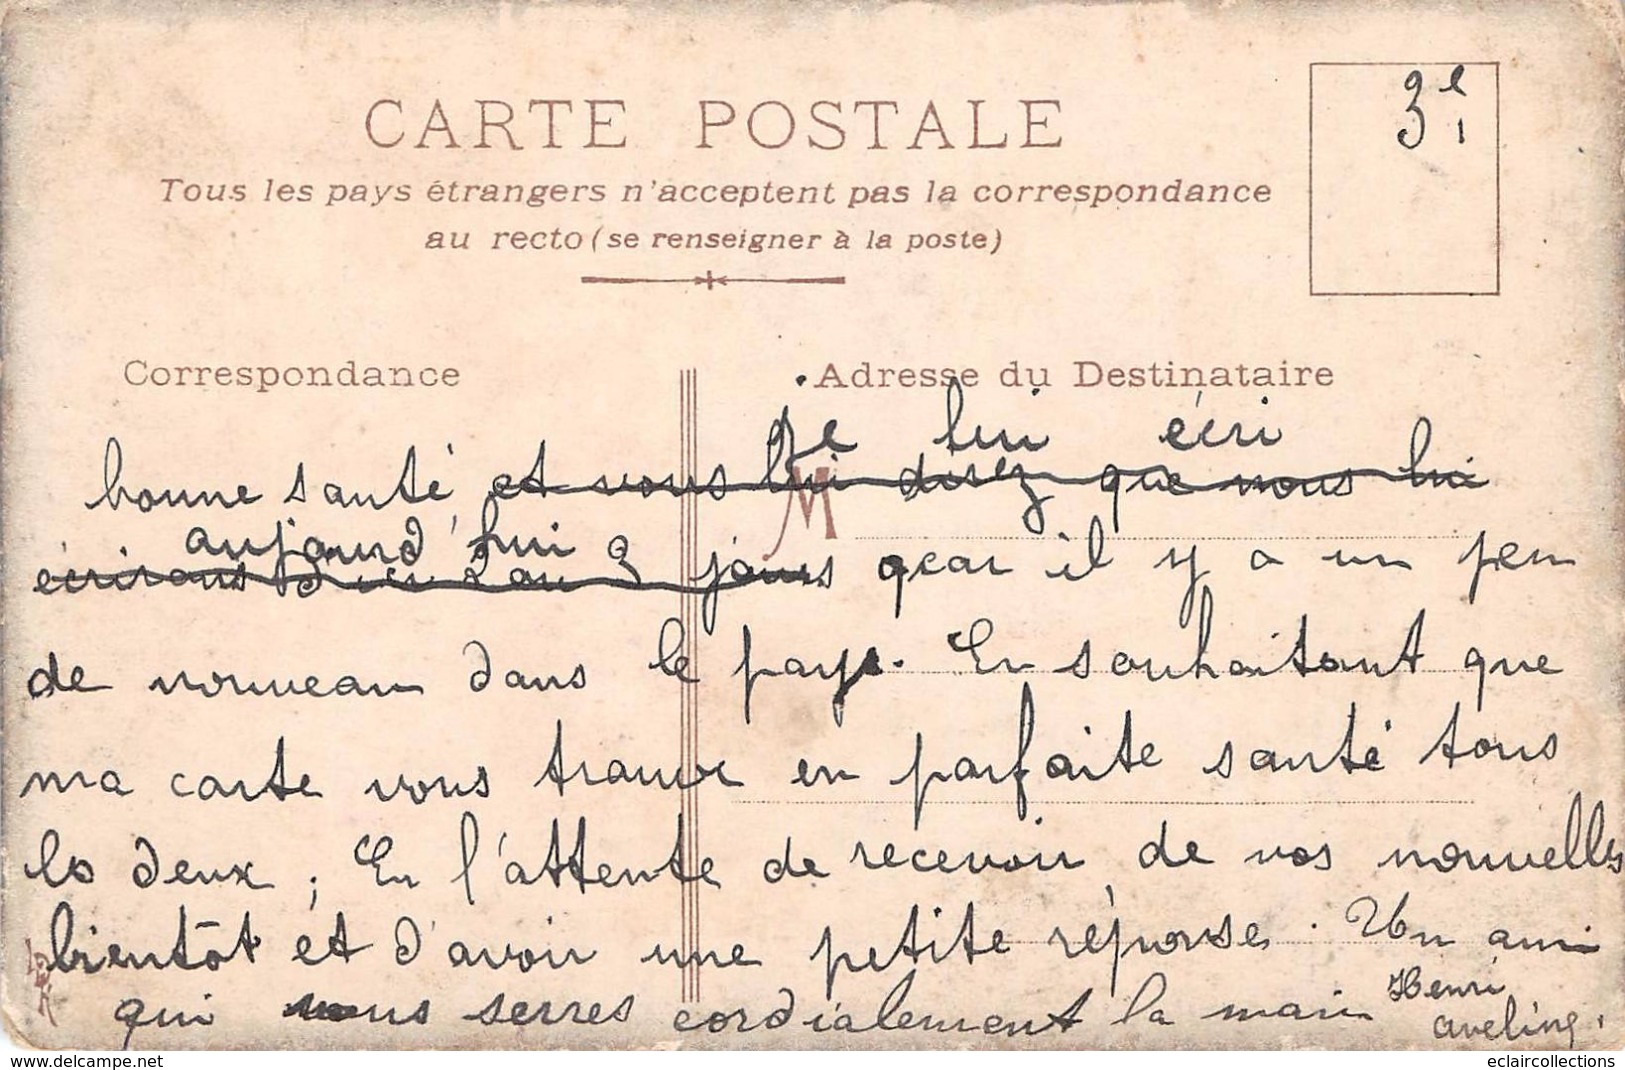 CARTE POSTALE
3e
1
Tous les pays étrangers n'acceptent pas la correspondance
au recto (se renseigner à la poste)
Correspondance
Adresse du Destinataire
Je lui écri
bonne santé, et vous lui disez que nous lui
aujourd'hui
écrirons d'ici 2 ou 3 jours car il y a un peu
M
de nouveau dans le pays. En souhaitant que
ma carte vous trouve en parfaite santé tous
les deux ; En l'attente de recevoir de vos nouvelles
bientôt et d'avoir une petite réponse. Un ami
qui vous serres cordialement la main Henri
aveline.
www.delcampe.net
eclaircollections